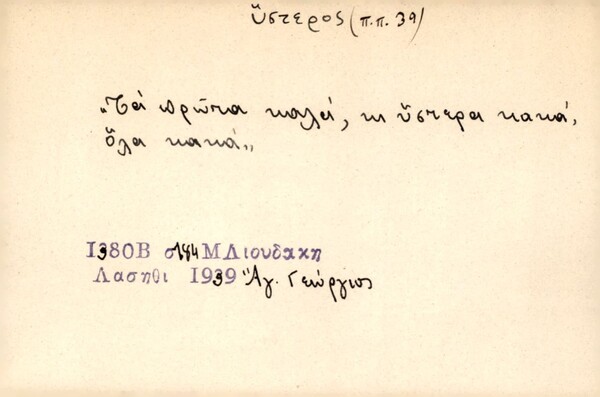 ὕστερος (π.π. 39)
„Τά πρῶτα καλά, κι ὕστερα κακά,
ὅλα κακά„
1380Β σ184 Μ Λιουδακη
Λασηθι 1939 Ἅγ. Γεώργιος